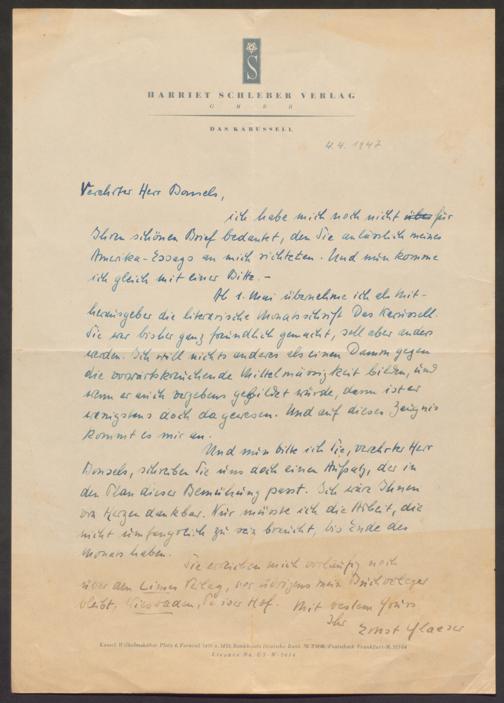 S
HARRIET SCHLEBER VERLAG
GMBH
DAS KARUSSELL
4.4.1947
Verehrter Herr Bonsels,
ich habe mich noch nicht über für
Ihren schönen Brief bedankt, den Sie anlässlich meines
Amerika-Essays an mich richteten. Und nun komme
ich gleich mit einer Bitte. –
Ab 1. Mai übernehme ich als Mit-
herausgeber die literarische Monatsschrift Das Karussell.
Sie war bisher ganz freundlich gemacht, soll aber anders
werden. Ich will nichts anderes als einen Damm gegen
die vorwärtskriechende Mittelmässigkeit bilden, und
wenn er auch vergebens gebildet würde, dann ist er
wenigstens doch da gewesen. Und auf dieses Zeugnis
kommt es mir an.
Und nun bitte ich Sie, verehrter Herr
Bonsels, schreiben Sie uns doch einen Aufsatz, der in
den Plan dieser Bemühung passt. Ich wäre Ihnen
von Herzen dankbar. Nur müsste ich die Arbeit, die
nicht umfangreich zu sein braucht, bis Ende des
Monats haben.
Sie erreichen mich vorläufig noch
über den Limes Verlag, der übrigens mein Buchverleger
bleibt, Wiesbaden, Hof. Mit bestem Gruss
Ihr Ernst Glaeser
Kassel-Wilhelmshöhe, Postscheck Frankfurt-M.
Licence No. US-W-2014